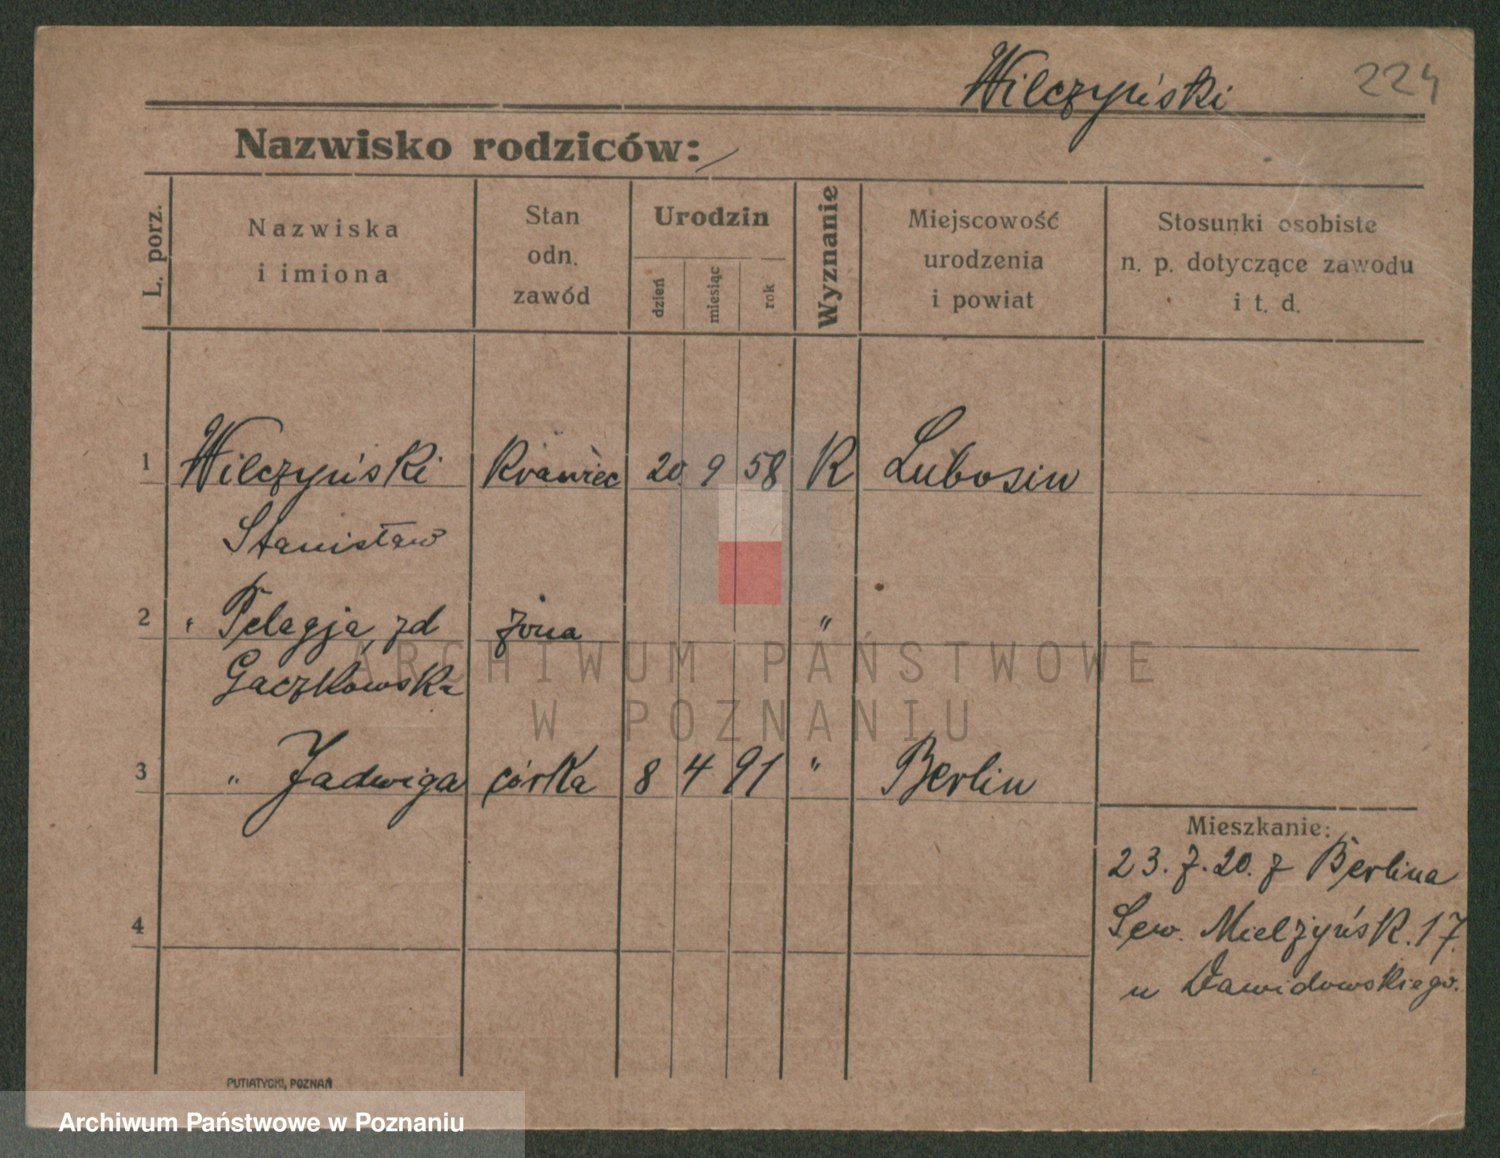 Wilczyński 224
Nazwisko rodziców:
L. porz.
Nazwiska
i imiona
Stan
odn.
zawód
Urodzin
dzień
miesiąc
rok
Wyznanie
Miejscowość
urodzenia
i powiat
Stosunki osobiste
n. p. dotyczące zawodu
i t. d.
1 Wilczyński Krawiec 20 9 58 R Lubosin
Stanisław
2 " Pelagja zd żona "
Gaczkowska
3 " Jadwiga córka 8 4 91 " Berlin
4
Mieszkanie:
23. 7. 20. z Berlina
Sew. Mielżyńsk. 17.
u Dawidowskiego.
PUTIATYCKI, POZNAŃ
ARCHIWUM PAŃSTWOWE
W POZNANIU
Archiwum Państwowe w Poznaniu